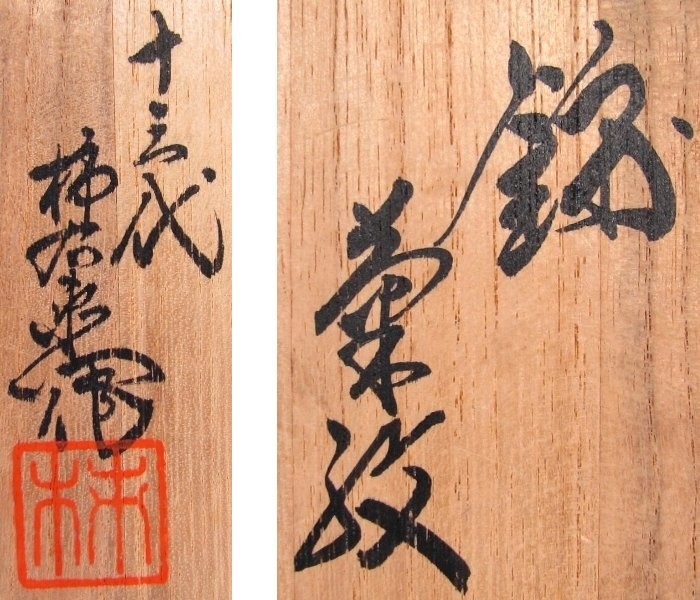 錦
菊紋
十三代
柿右衛門作